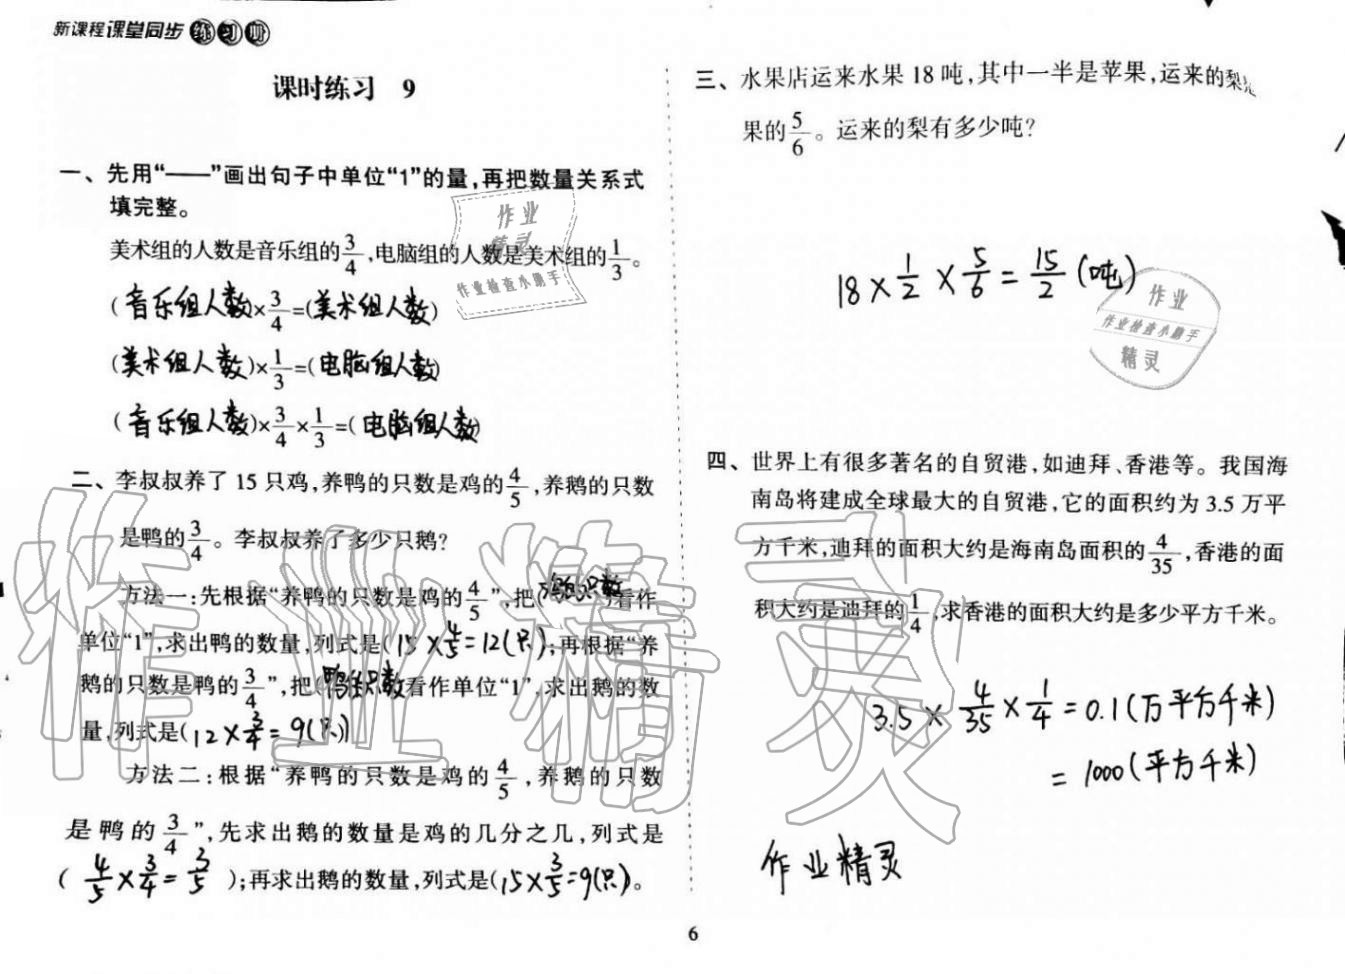 新课程课堂同步练习册
课时练习 9
一、先用“——”画出句子中单位“1”的量,再把数量关系式
填完整。
美术组的人数是音乐组的3/4,电脑组的人数是美术组的1/3。
(音乐组人数)×3/4=(美术组人数)
(美术组人数)×1/3=(电脑组人数)
(音乐组人数)×3/4×1/3=(电脑组人数)
二、李叔叔养了 15 只鸡,养鸭的只数是鸡的4/5,养鹅的只数
是鸭的3/4。李叔叔养了多少只鹅?
方法一:先根据“养鸭的只数是鸡的4/5”,把(鸡的只数)看作
单位“1”,求出鸭的数量,列式是(15×4/5=12(只));再根据“养
鹅的只数是鸭的3/4”,把(鸭的只数)看作单位“1”,求出鹅的数
量,列式是(12×3/4=9(只))
方法二:根据“养鸭的只数是鸡的4/5,养鹅的只数
是鸭的3/4”,先求出鹅的数量是鸡的几分之几,列式是
(4/5×3/4=3/5);再求出鹅的数量,列式是(15×3/5=9(只))。
三、水果店运来水果 18 吨,其中一半是苹果,运来的梨是
果的5/6。运来的梨有多少吨?
18×1/2×5/6=15/2(吨)
四、世界上有很多著名的自贸港,如迪拜、香港等。我国海
南岛将建成全球最大的自贸港,它的面积约为 3.5 万平
方千米,迪拜的面积大约是海南岛面积的4/35,香港的面
积大约是迪拜的1/4,求香港的面积大约是多少平方千米。
3.5×4/35×1/4=0.1(万平方千米)
=1000(平方千米)
作业精灵
6
作业
精灵
作业检查小助手
作业
作业检查小助手
精灵
作业精灵